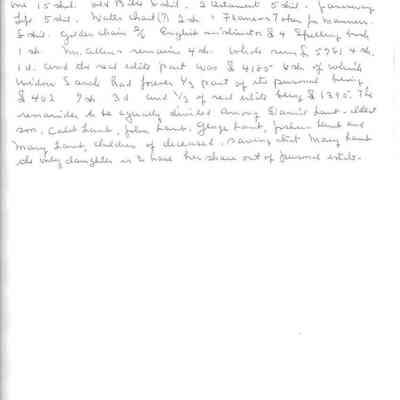 one 15 shil. old Bible 6 shil. 2 Testament 5 shil.
Life 5 shil. Waller 2 sh. 1 Flamens
6 shil. golden chain 2/6 English 4 Spelling book
1 sh. Mr. Allens remains 4 sh. whole sum £ 5961 4 sh.
1 d. and the real estate part was £ 4185 6 sh of which
widow Sarah had forever 1/3 part of the personal being
£ 402 9 sh 3 d and 1/3 of real estate being £ 1395. The
remainder to be equally divided among Daniel Lunt - eldest
son, Cadet Lunt, John Lunt, George Lunt, Joshua Lunt and
Mary Lunt, children of deceased. Saving that Mary Lunt
the only daughter is to have her share out of personal estate.